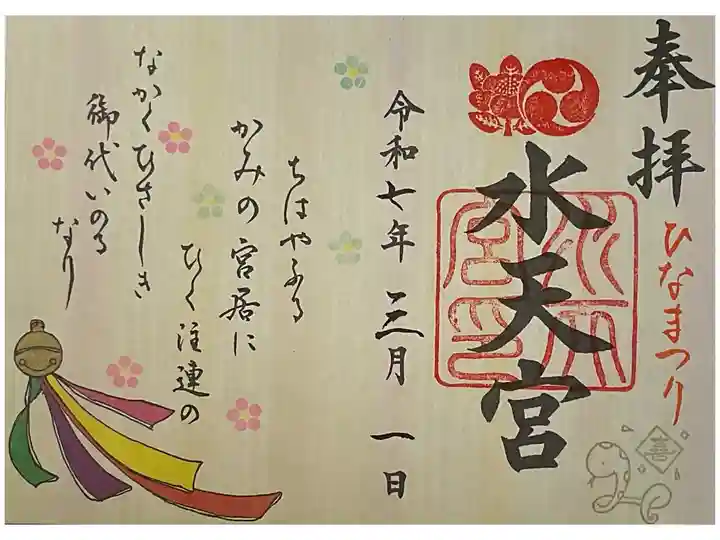 奉拝
ひなまつり
喜
水天宮
令和七年 三月 一日
ちはやふる
かみの宮居に
ひく注連の
なかくひさしき
御代いのる
なり